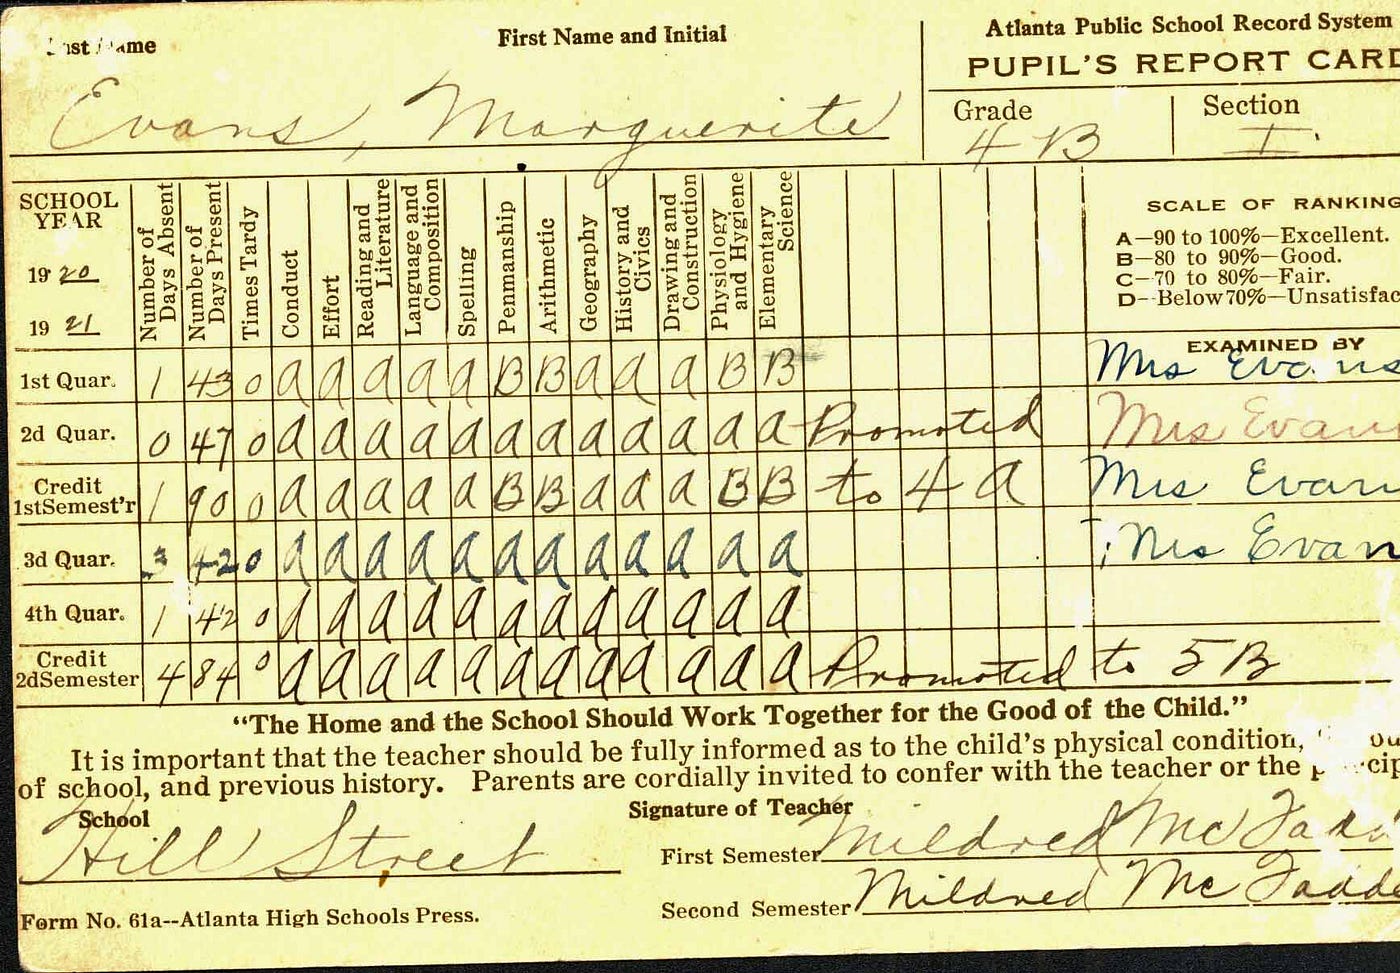 Last Name First Name and Initial Atlanta Public School Record System
PUPIL'S REPORT CARD
Evans, Marguerite
Grade Section
4 B I
SCHOOL YEAR
1920
1921
Number of Days Absent
Number of Days Present
Times Tardy
Conduct
Effort
Reading and Literature
Language and Composition
Spelling
Penmanship
Arithmetic
Geography
History and Civics
Drawing and Construction
Physiology and Hygiene
Elementary Science
SCALE OF RANKING
A—90 to 100%—Excellent.
B—80 to 90%—Good.
C—70 to 80%—Fair.
D--Below 70%—Unsatisfac
EXAMINED BY
1st Quar. 1 43 0 a a a a a B B a a a B B Mrs Evans
2d Quar. 0 47 0 a a a a a a a a a a a a Promoted Mrs Evans
Credit 1st Semest'r 1 90 0 a a a a a B B a a a B B to 4 a Mrs Evan
3d Quar. 3 42 0 a a a a a a a a a a a a Mrs Evan
4th Quar. 1 42 0 a a a a a a a a a a a a
Credit 2d Semester 4 84 0 a a a a a a a a a a a a Promoted to 5 B
"The Home and the School Should Work Together for the Good of the Child."
It is important that the teacher should be fully informed as to the child's physical condition,
of school, and previous history. Parents are cordially invited to confer with the teacher or the
School Signature of Teacher
Hill Street
First Semester Mildred McFadd
Second Semester Mildred McFadde
Form No. 61a--Atlanta High Schools Press.